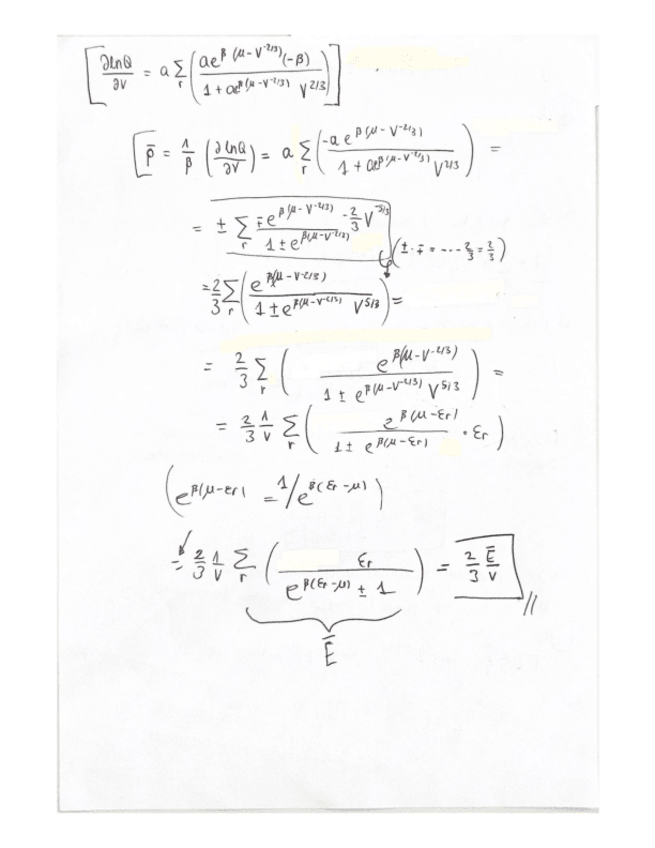 [∂lnQ/∂V = a Σ_r (ae^{β(μ-V^{-2/3})}(-β) / 1 + ae^{β(μ-V^{-2/3})} V^{2/3})]
[p̄ = 1/β (∂lnQ/∂V) = a Σ_r (-a e^{β(μ-V^{-2/3})} / 1 + ae^{β(μ-V^{-2/3})} V^{2/3}) =
= ± Σ_r ∓e^{β(μ-V^{-2/3})} -2/3 V^{-5/3} / 1 ± e^{β(μ-V^{-2/3})} (± · ∓ = - · - 2/3 = 2/3)
= 2/3 Σ_r (e^{β(μ-V^{-2/3})} / 1 ± e^{β(μ-V^{-2/3})} V^{5/3}) =
= 2/3 Σ_r (e^{β(μ-V^{-2/3})} / 1 ± e^{β(μ-V^{-2/3})} V^{5/3}) =
= 2/3 1/V Σ_r (e^{β(μ-εr)} / 1 ± e^{β(μ-εr)} · εr)
(e^{β(μ-εr)} = 1/e^{β(εr-μ)})
= 2/3 1/V Σ_r (εr / e^{β(εr-μ)} ± 1) = 2/3 Ē/V //
Ē